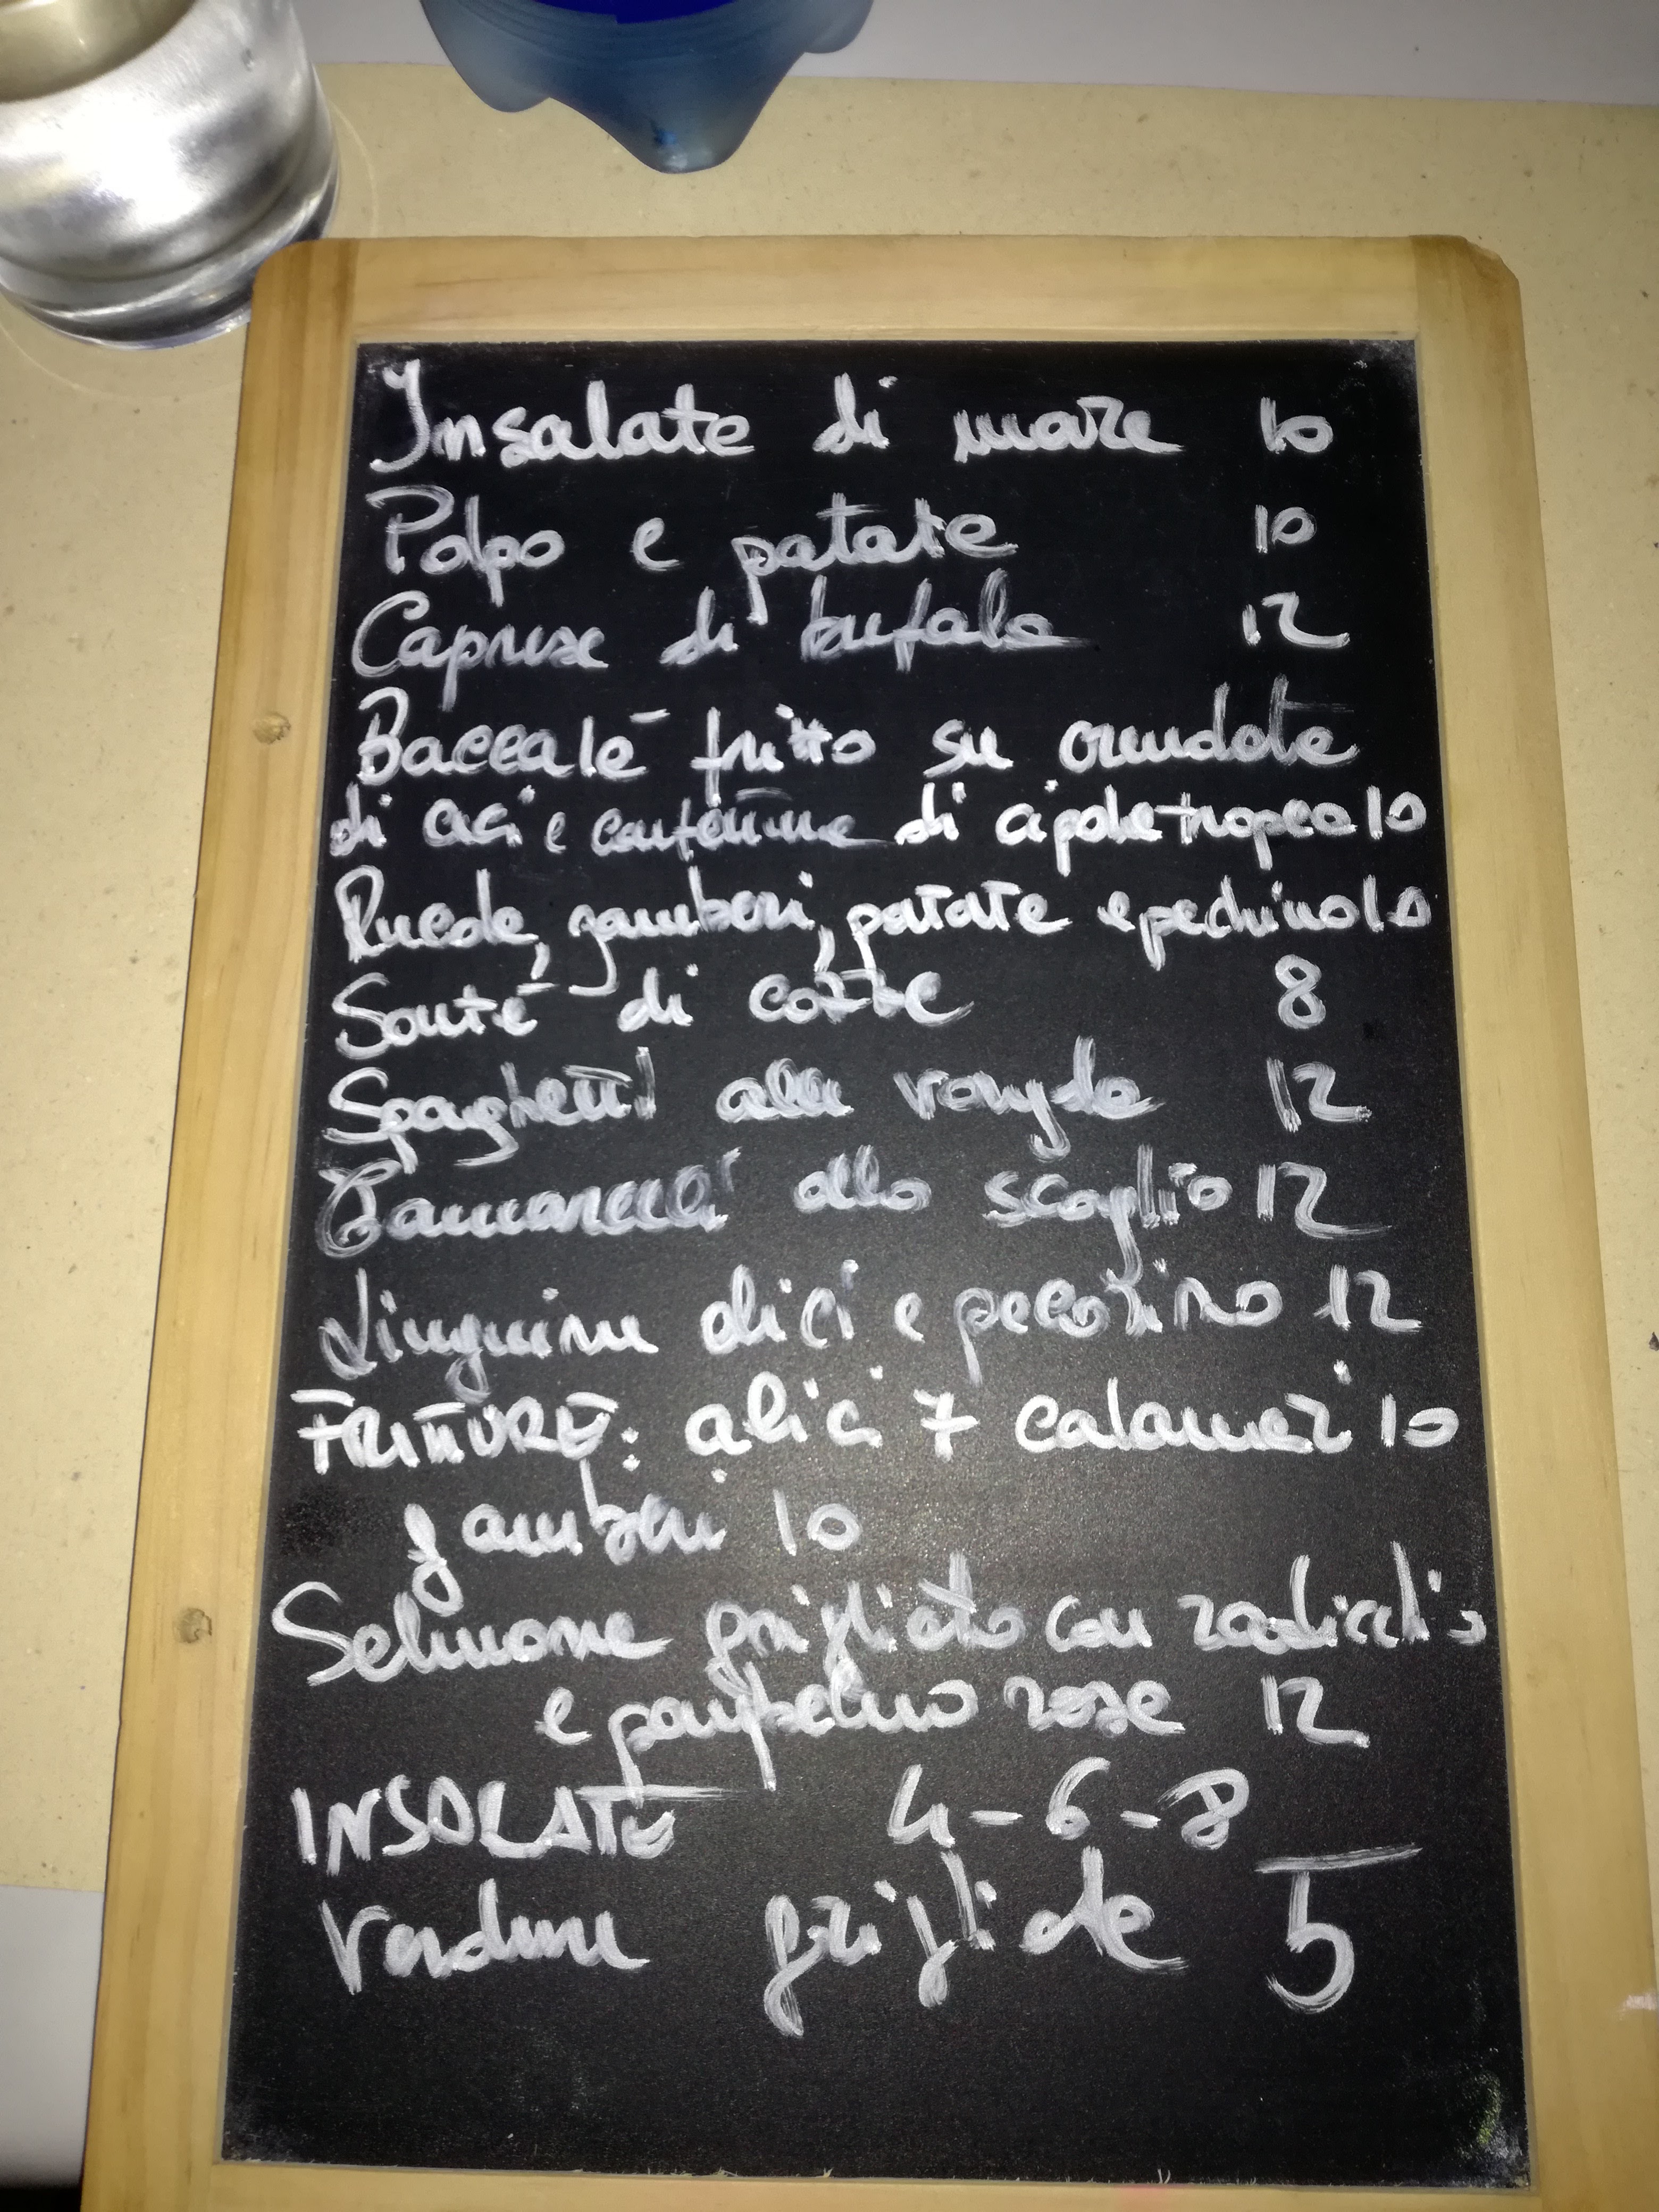 Insalata di mare 10
Polpo e patate 10
Caprese di bufala 12
Baccalà fritto su vellutata
di ceci e confettura di cipolle tropea 10
Rucola, gamberi, patate e pachino 10
Sautè di cozze 8
Spaghetti alle vongole 12
Paccheri allo scoglio 12
Linguine alici e pecorino 12
FRITTURE: alici 7 calamari 10
gamberi 10
Salmone grigliato con radicchio
e pompelmo rosa 12
INSALATE 4-6-8
Verdure grigliate 5